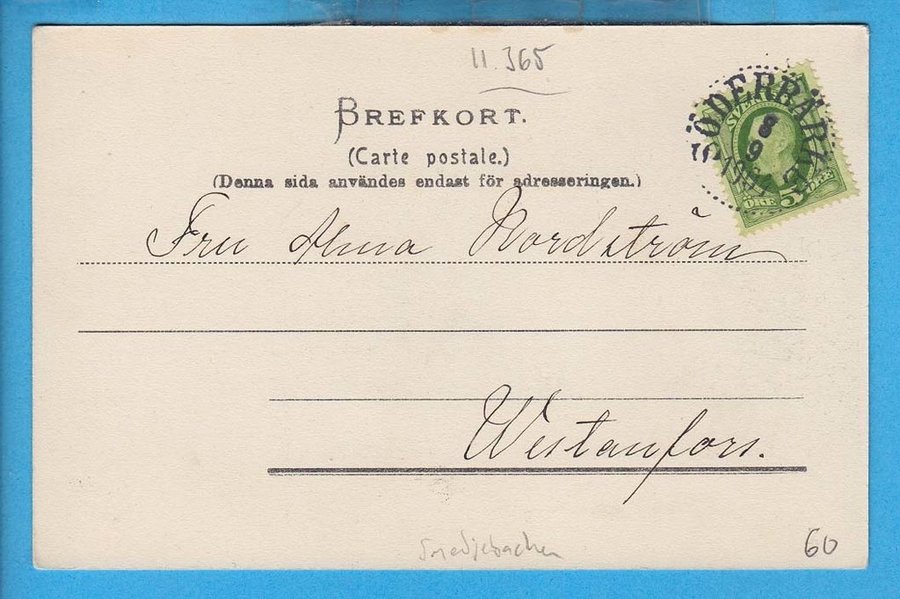 11.365
BREFKORT.
(Carte postale.)
(Denna sida användes endast för adresseringen.)
SÖDERBÄRKE
8
9
SVERIGE
5
ÖRE ÖRE
Fru Alma Nordström
Westanfors.
Smedjebacken
60